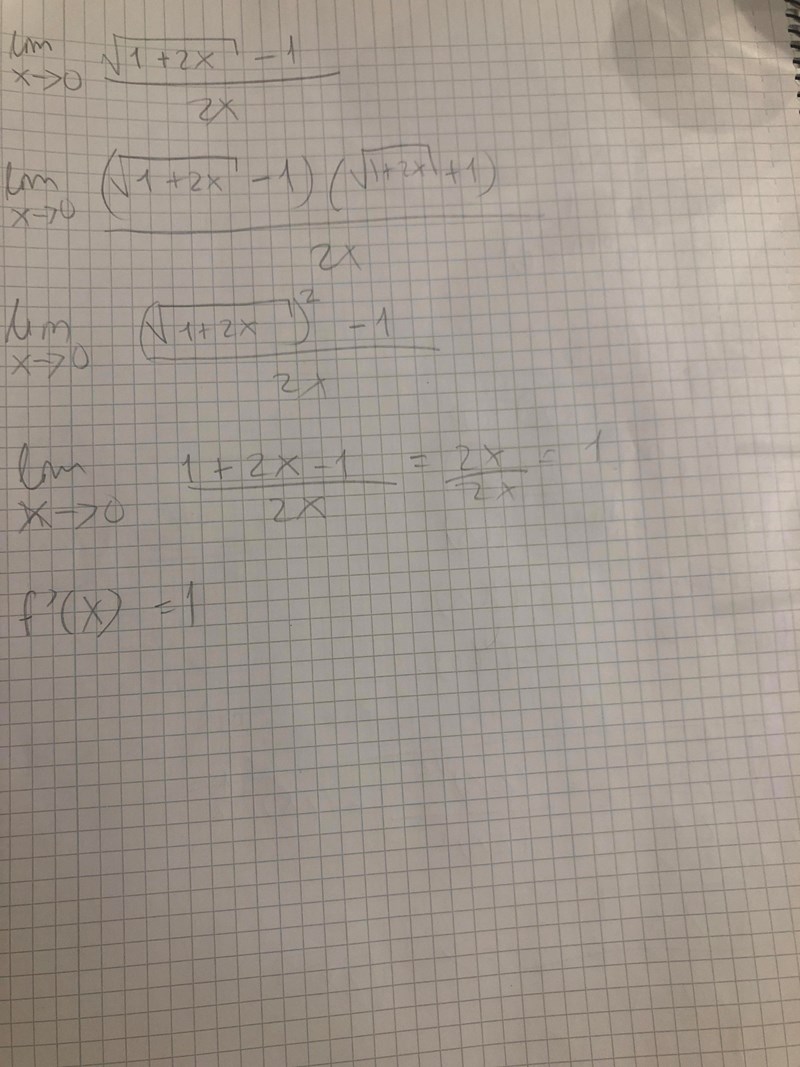 lim x→0 (√(1+2x) - 1)/(2x)
lim x→0 ((√(1+2x) - 1)(√(1+2x) + 1))/(2x)
lim x→0 ((√(1+2x))² - 1)/(2x)
lim x→0 (1+2x-1)/(2x) = (2x)/(2x) = 1
f'(x) = 1